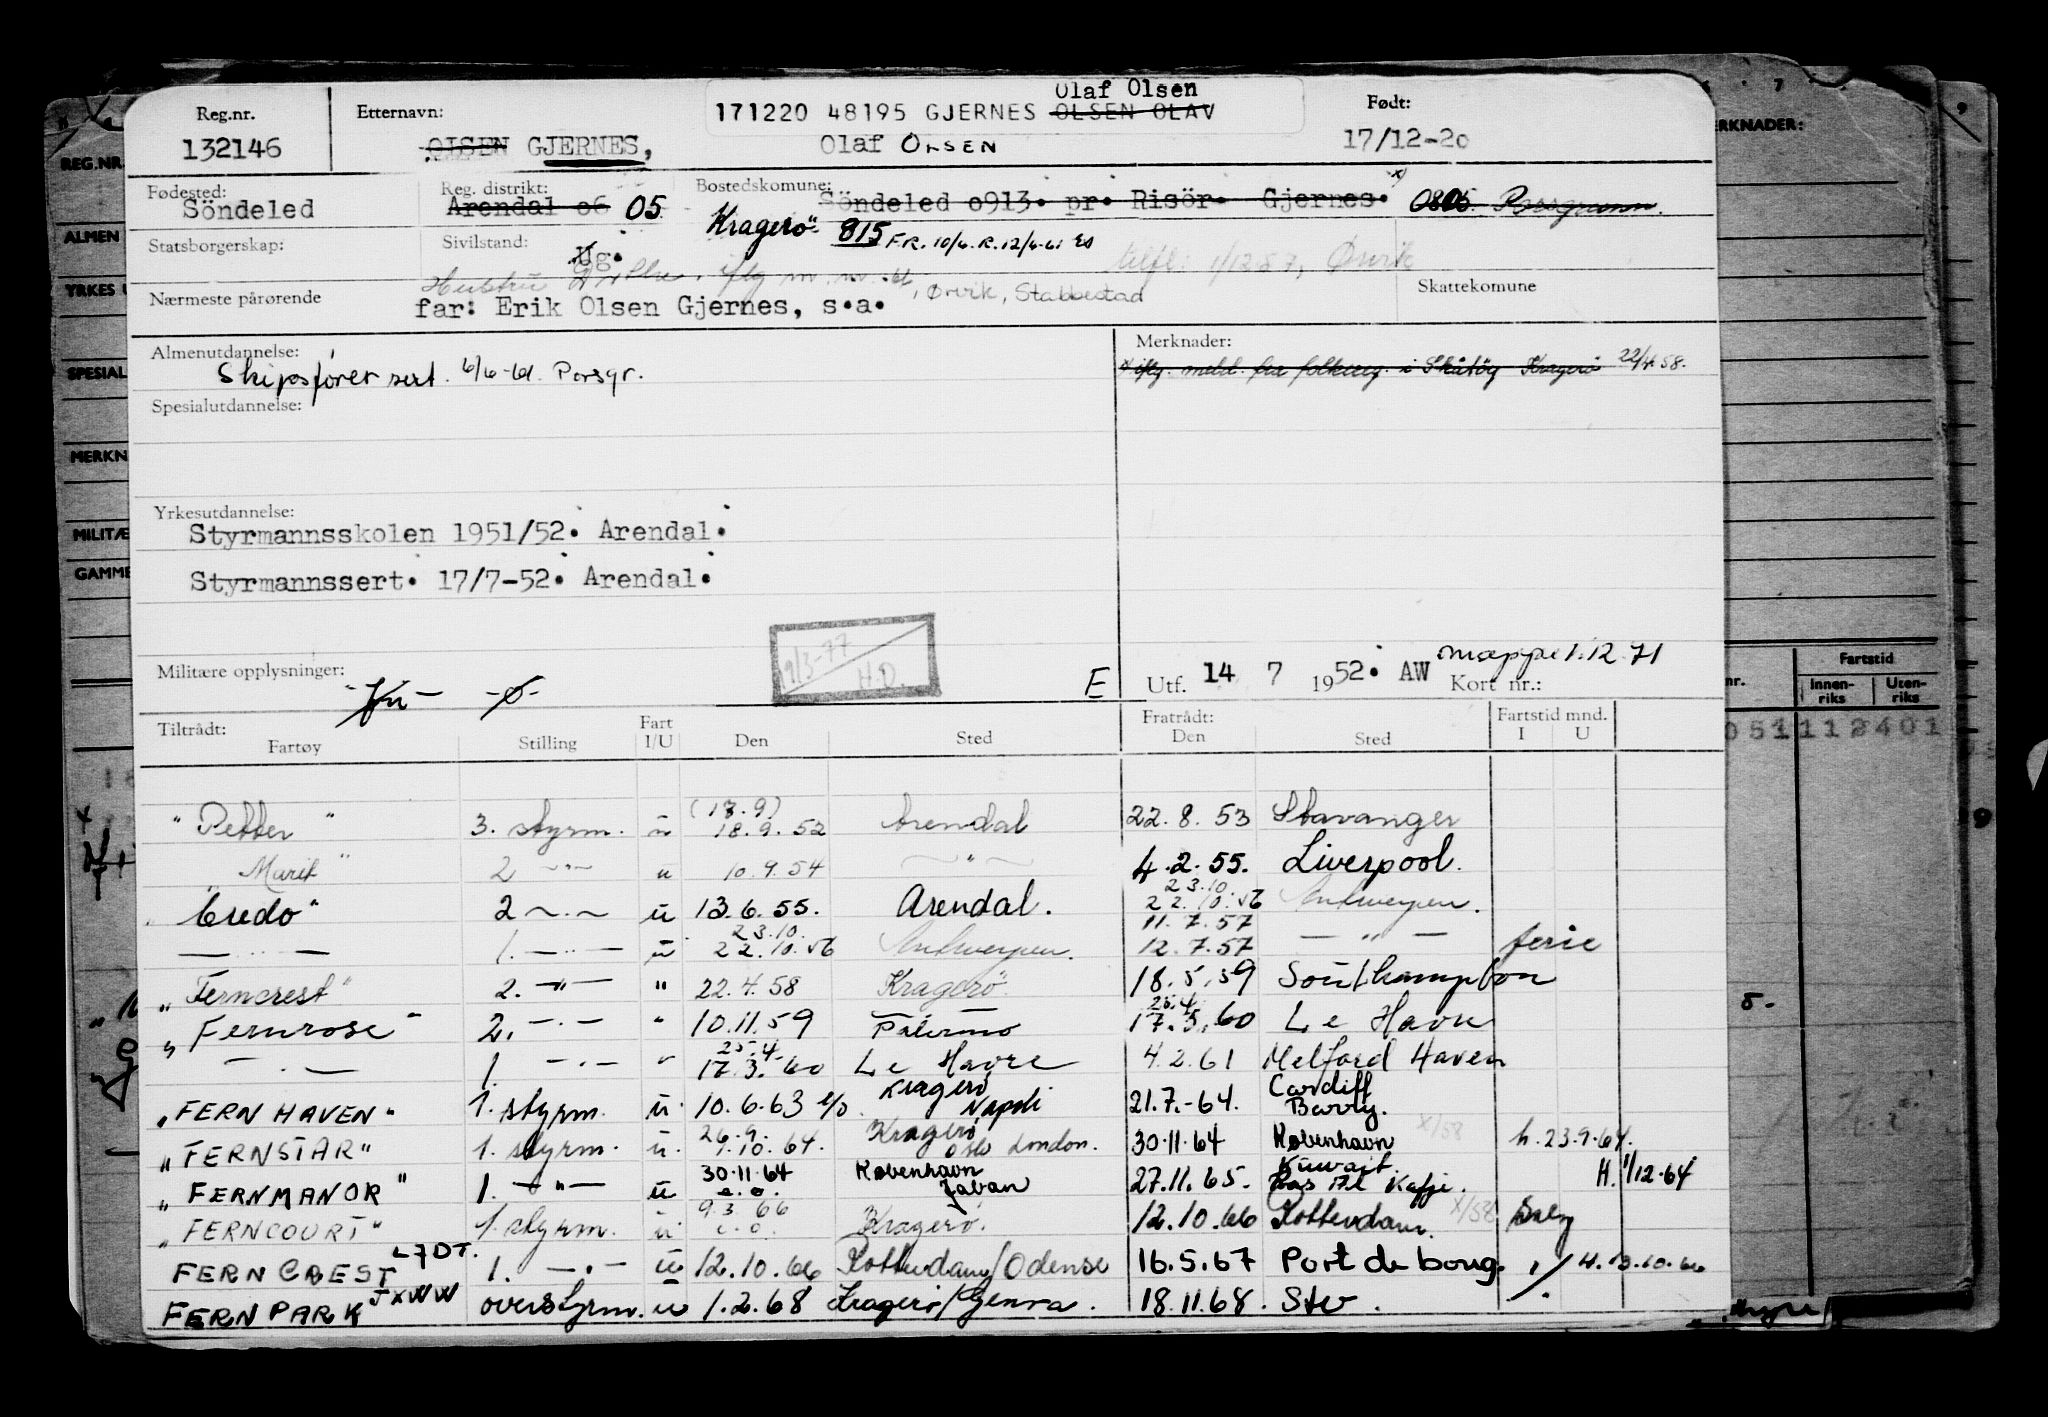 Reg.nr. Etternavn: 171220 48195 GJERNES OLSEN OLAV Olaf Olsen Født:
132146 OLSEN GJERNES, Olaf OLSEN 17/12-20
Fødested: Reg. distrikt: Bostedskomune:
Söndeled Arendal o6 05 Söndeled o913. pr. Risör. Gjernes. x) Porsgrunn.
Kragerö 815 F.R. 10/6. R. 12/6-61
Statsborgerskap: Sivilstand: Ug. tilfl. 1/12 57, Ørvik
Hustru , Ørvik, Stabbestad
Nærmeste pårørende far: Erik Olsen Gjernes, s.a. Skattekomune
Almenutdannelse: Merknader:
Skipsfører sert. 6/6-61. Porsgr. x iflg. meld. fra folkereg. i Skåtøy Kragerö 22/4 58.
Spesialutdannelse:
Yrkesutdannelse:
Styrmannsskolen 1951/52. Arendal.
Styrmannssert. 17/7-52. Arendal.
9/3-77
H.O.
Militære opplysninger: E Utf. 14 7 1952. AW Kort nr.: mappe 1.12.71
Tiltrådt: Fart Fratrådt: Fartstid mnd.
Fartøy Stilling I/U Den Sted Den Sted I U
"Petter" 3. styrm. u (17.9) 18.9.52 Arendal 22.8.53 Stavanger
Marit" 2 —"— u 10.9.54 —"— 4.2.55. Liverpool.
"Credo" 2 —"— u 13.6.55. Arendal. 23.10. 22.10.56 Antwerpen.
—"— 1. —"— u 23.10. 22.10.56 Antwerpen. 11.7.57 12.7.57 —"— ferie
"Ferncrest" 2. —"— " 22.4.58 Kragerö 18.5.59 Southampton
"Fernrose" 2. —"— " 10.11.59 Palermo 25.4. 17.3.60 Le Havre
—"— 1. —"— " 25.4. 17.3.60 Le Havre 4.2.61 Melford Haven
"FERNHAVEN" 1. styrm. u. 10.6.63 e/o. Kragerö Napoli 21.7.-64. Cardiff Barry.
"FERNSTAR" 1. styrm. u. 26.9. 9.10.64. Kragerö Oslo London. 30.11.64 København x/58 h. 23.9.64.
"FERNMANOR" 1. —"— u 30.11.64 e.o. København Jaban 27.11.65. Kuwait. Ras Al Kafje. H. 1/12.64
"FERNCOURT" 1. styrm. u 9.3.66 e.o. Kragerö. 12.10.66 Rotterdam. x/58
FERNCREST L7DT. 1. —"— u 12.10.66 Rotterdam/Odense 16.5.67 Port de boug. 4. 13.10.66
FERN PARK JXWW overstyrm. u 1.2.68 Kragerö/Genva. 18.11.68. Stv.
REG.NR.
ALMEN
YRKES U
SPESIAL
MERKN
MILITÆ
GAMME
MERKNADER:
nr. Fartstid
Innen-riks Uten-riks
051112401
8.